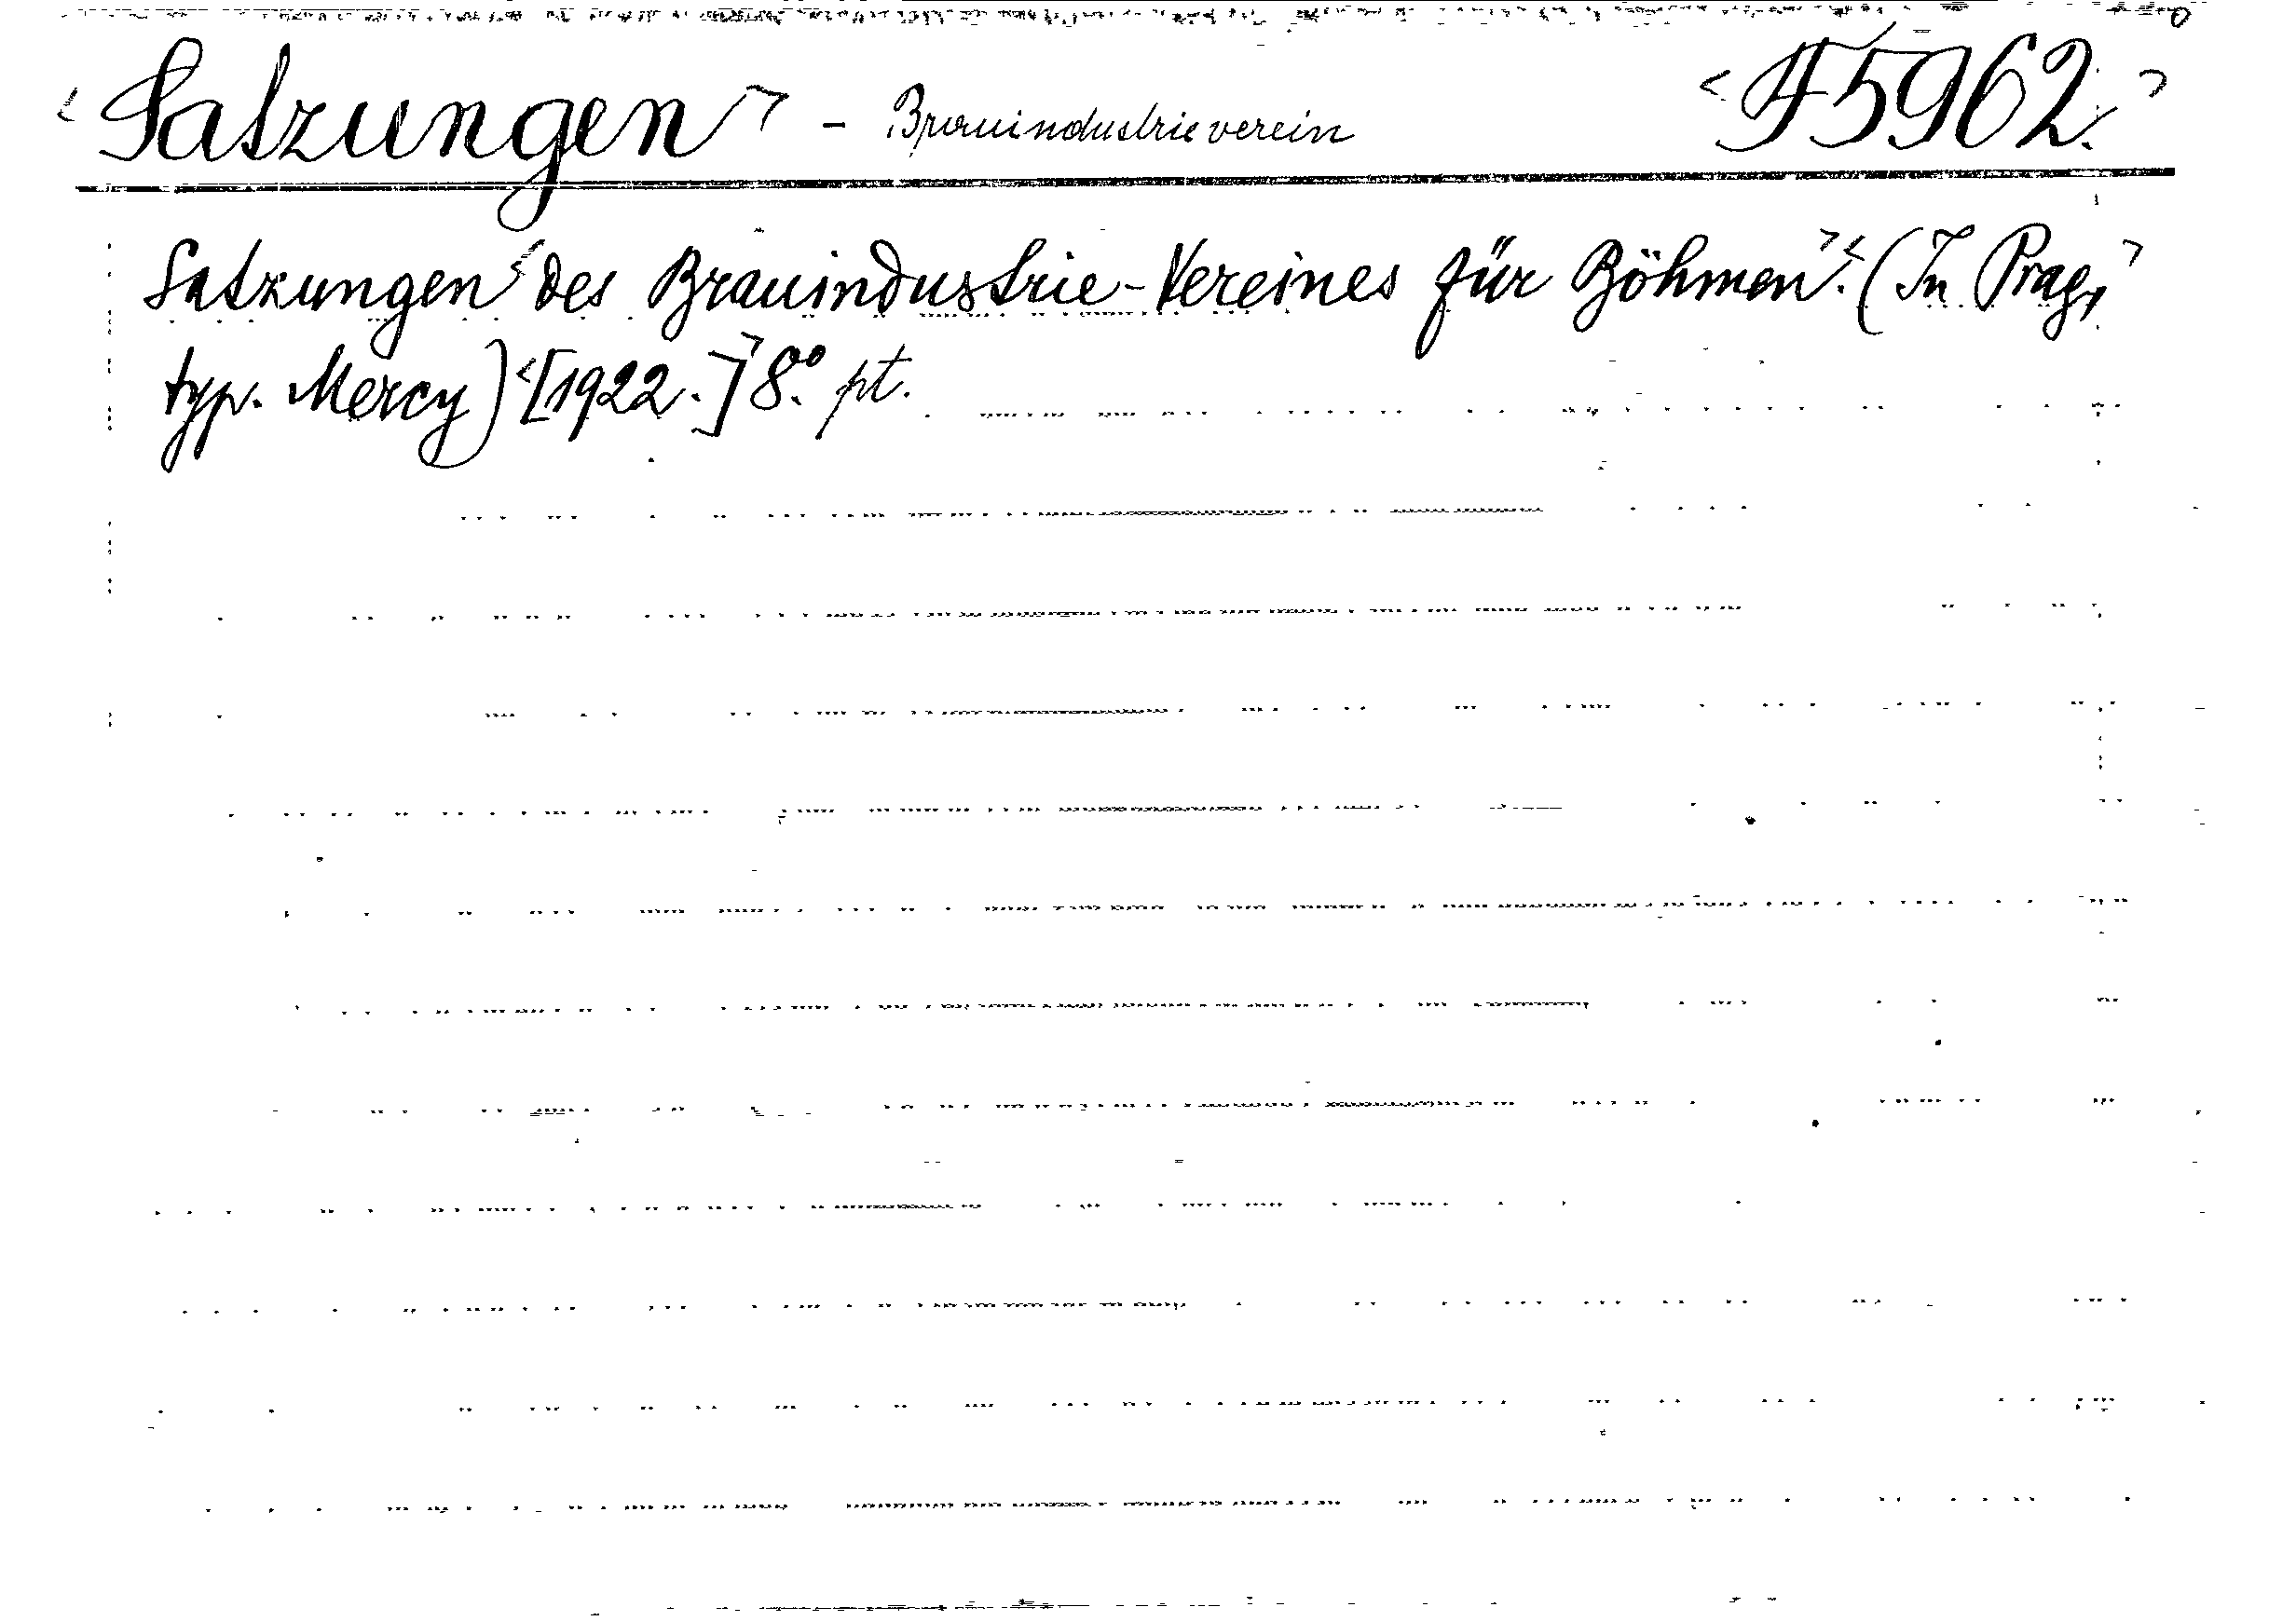 <Satzungen> - Brauindustrieverein <H 5962.>
Satzungen <des Brauindustrie-Vereines für Böhmen>.<(In Prag,>
typ. Mercy) <[1922.]> 8.° pt.